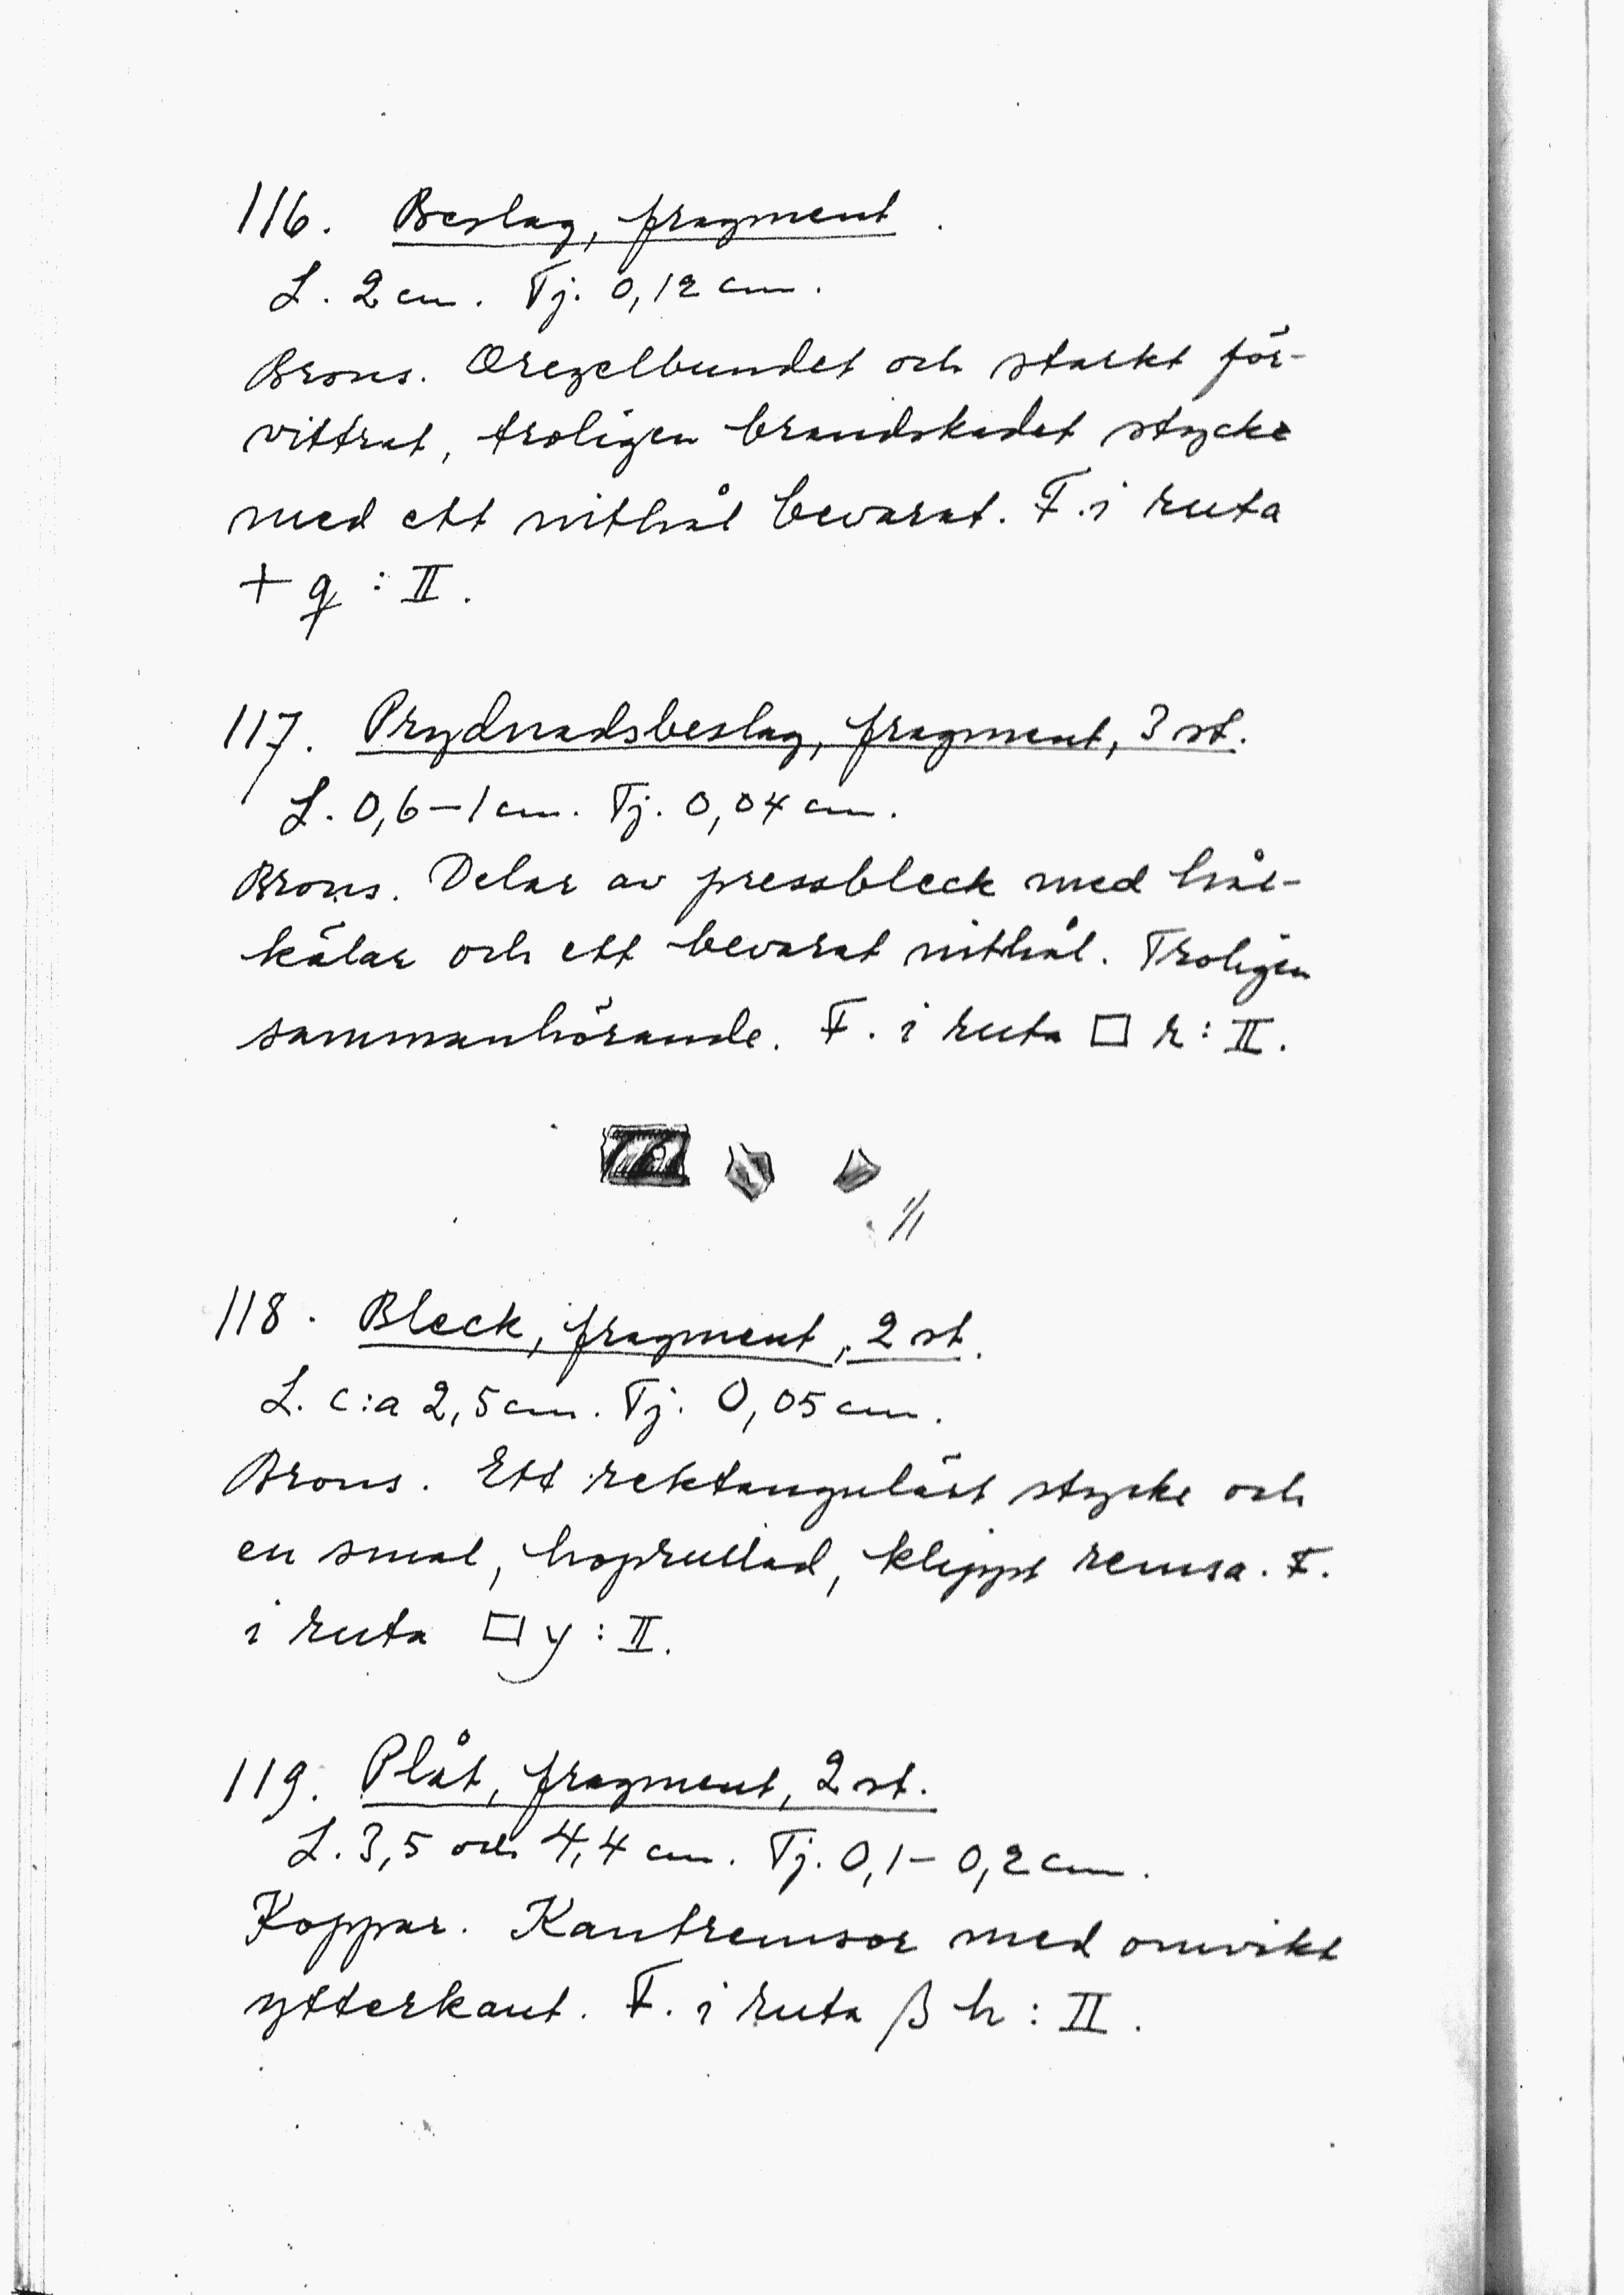 116. Beslag, fragment.
L. 2 cm. Tj. 0,12 cm.
Brons. Oregelbundet och starkt för-
vittrat, troligen brandskadat stycke
med ett nithål bevarat. F. i ruta
+ q : II.
117. Prydnadsbeslag, fragment, 3 st.
L. 0,6–1 cm. Tj. 0,04 cm.
Brons. Delar av pressbleck med hål-
kälar och ett bevarat nithål. Troligen
sammanhörande. F. i ruta □ r : II.
1/1
118. Bleck, fragment, 2 st.
L. c:a 2,5 cm. Tj. 0,05 cm.
Brons. Ett rektangulärt stycke och
en smal, hoprullad, klippt remsa. F.
i ruta □ y : II.
119. Plåt, fragment, 2 st.
L. 3,5 och 4,4 cm. Tj. 0,1–0,2 cm.
Koppar. Kantremsor med omvikt
ytterkant. F. i ruta β h : II.